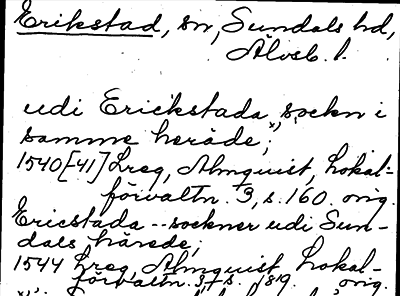 Erikstad, sn, Sundals hd,
Älvsb. l.
udi Erickstada sockn i
samme heräde;
1540[41] Lreg, Almquist, Lokal-
förvaltn. 3, s. 160. orig.
Ericstada -- sockner udi Sun-
dals härede;
1544 Lreg, Almquist, Lokal-
förvaltn. orig.